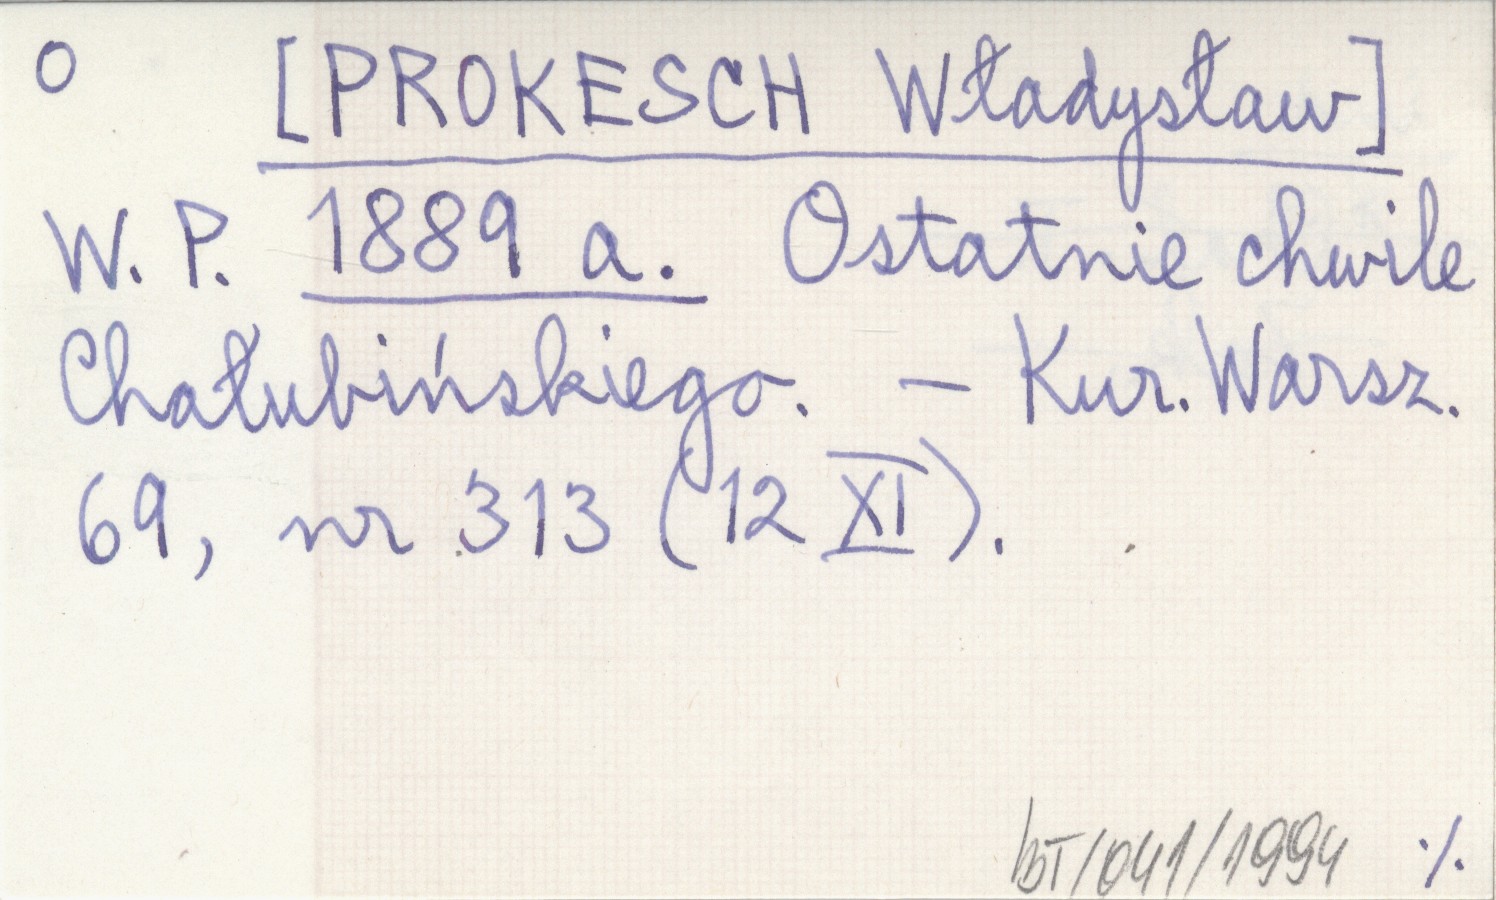 o [PROKESCH Władysław]
W. P. 1889 a. Ostatnie chwile
Chałubińskiego. – Kur. Warsz.
69, nr 313 (12 XI).
bT/041/1994 ·/.